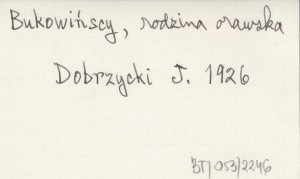 Bukowińscy, rodzina orawska
Dobrzycki J. 1926
BT/053/2246